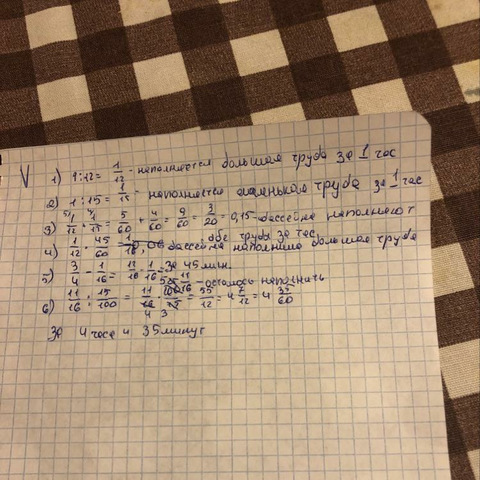 V 1) 1:12 = 1/12 - наполняется большая труба за 1 час
2) 1:15 = 1/15 - наполняется маленькая труба за 1 час
3) 5/1/12 + 4/1/15 = 5/60 + 4/60 = 9/60 = 3/20 = 0,15 - бассейна наполняют
обе трубы за час
4) 1/12 · 45/60 = 1/16 бассейна наполнила большая труба
за 45 мин.
5) 3/4 - 1/16 = 12/16 - 1/16 = 11/16 - осталось наполнить
6) 11/16 : 15/100 = 11/16 · 100/15 = 55/12 = 4 7/12 = 4 35/60
4 3
За 4 часа и 35 минут